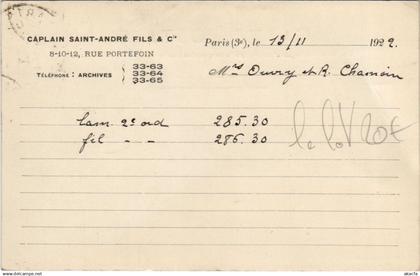 CAPLAIN SAINT-ANDRÉ FILS & Cie
8-10-12, RUE PORTEFOIN
TÉLÉPHONE : ARCHIVES 33-63
33-64
33-65
Paris (3e), le 13/11 1922
Mrs Ouvry et R.
Lam. 2e ord 285.30
fil - - 286.30
le